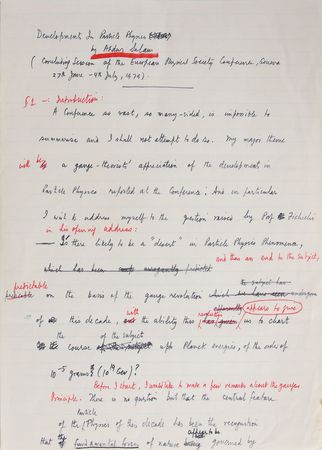 Developments In Particle Physics
by Abdus Salam
( Concluding Session of the European Physical Society Conference, Geneva
27th June - 4th July, 1979).
§1 -: Introduction:
A Conference as vast, so many-sided, is impossible to
summarise and I shall not attempt to do so. My major theme
will be a gauge-theorists' appreciation of the development in
Particle Physics reported at the Conference; And in particular
I wish to address myself to the question raised by Prof Zichichi
in his opening address:
— Is there likely to be a "desert" in Particle Physics Phenomena,
and thus an end to the subject,
which has been
predictable on the basis of the gauge revolution
of this decade, with the ability this revolution appears to give us to chart
the course of the subject upto Planck energies, of the order of
10⁻⁵ grams? (10¹⁹ GeV)?
Before I start, I would like to make a few remarks about the gauge
Principle. There is no question but that the central feature
of the Particle Physics of this decade has been the recognition
that the fundamental forces of nature appear to be governed by